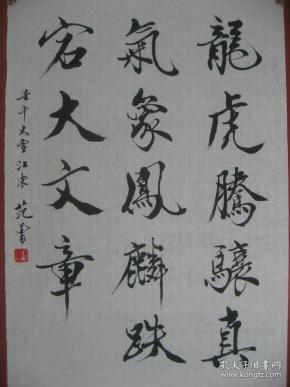 龍虎騰驤真
氣象鳳麟跌
宕大文章
壬午大雪江東范曾
孔夫子旧书网